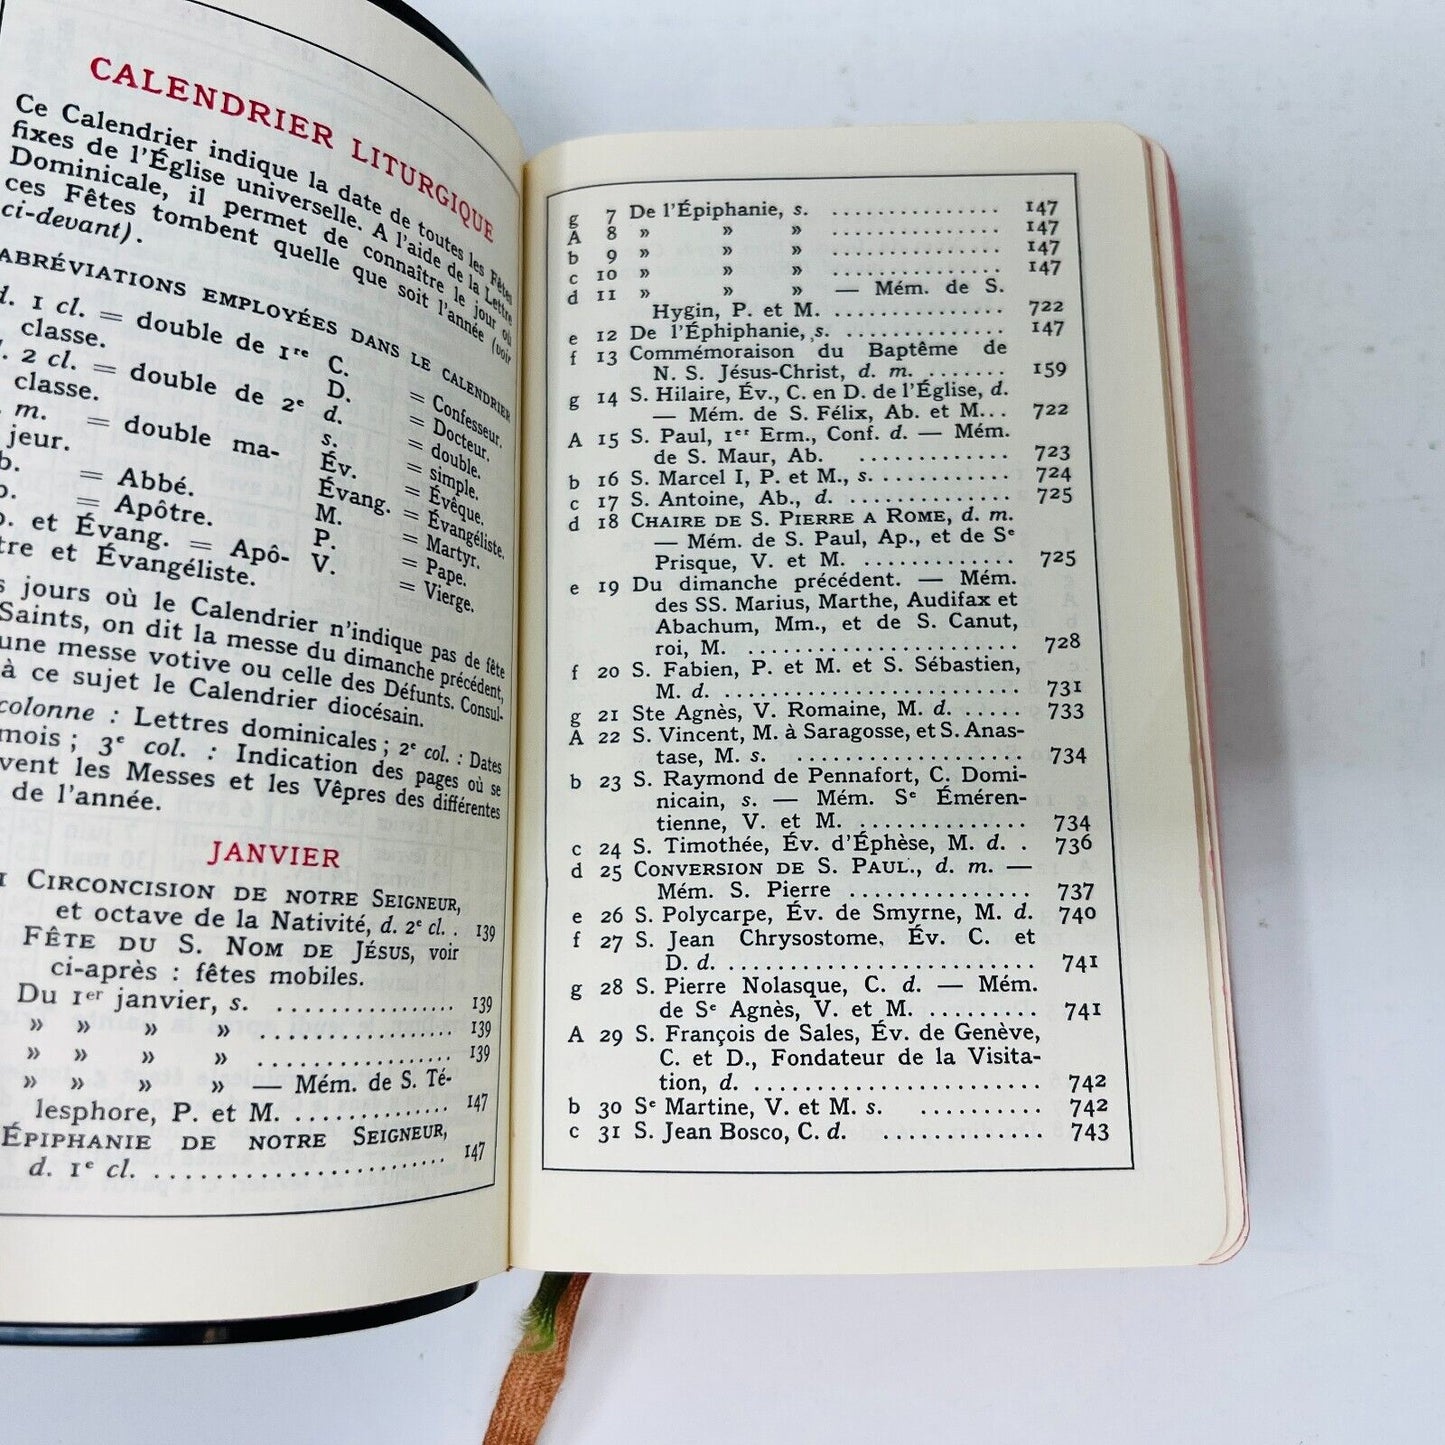 CALENDRIER LITURGIQUE
Ce Calendrier indique la date de toutes les Fêtes
fixes de l'Église universelle. A l'aide de la Lettre
Dominicale, il permet de connaître le jour où
ces Fêtes tombent quelle que soit l'année (voir
ci-devant).
ABRÉVIATIONS EMPLOYÉES DANS LE CALENDRIER
d. 1 cl. = double de 1re
classe.
d. 2 cl. = double de 2e
classe.
m. = double ma-
jeur.
= Abbé.
= Apôtre.
et Évang. = Apô-
tre et Évangéliste.
C. = Confesseur.
D. = Docteur.
d. = double.
s. = simple.
Év. = Évêque.
Évang. = Évangéliste.
M. = Martyr.
P. = Pape.
V. = Vierge.
jours où le Calendrier n'indique pas de fête
Saints, on dit la messe du dimanche précédent,
une messe votive ou celle des Défunts. Consul-
à ce sujet le Calendrier diocésain.
colonne : Lettres dominicales ; 2e col. : Dates
mois ; 3e col. : Indication des pages où se
vent les Messes et les Vêpres des différentes
de l'année.
JANVIER
1 CIRCONCISION DE NOTRE SEIGNEUR,
et octave de la Nativité, d. 2e cl. . 139
FÊTE DU S. NOM DE JÉSUS, voir
ci-après : fêtes mobiles.
Du 1er janvier, s. ................ 139
» » » » ................ 139
» » » » ................ 139
» » » » — Mém. de S. Té-
lesphore, P. et M. ............ 147
ÉPIPHANIE DE NOTRE SEIGNEUR,
d. 1e cl. ........................ 147
g 7 De l'Épiphanie, s. ............... 147
A 8 » » » ............... 147
b 9 » » » ............... 147
c 10 » » » ............... 147
d 11 » » » — Mém. de S.
Hygin, P. et M. ............... 722
e 12 De l'Éphiphanie, s. .............. 147
f 13 Commémoraison du Baptême de
N. S. Jésus-Christ, d. m. ....... 159
g 14 S. Hilaire, Év., C. en D. de l'Église, d.
— Mém. de S. Félix, Ab. et M... 722
A 15 S. Paul, 1er Erm., Conf. d. — Mém.
de S. Maur, Ab. ............. 723
b 16 S. Marcel I, P. et M., s. ............ 724
c 17 S. Antoine, Ab., d. ............... 725
d 18 CHAIRE DE S. PIERRE A ROME, d. m.
— Mém. de S. Paul, Ap., et de Se
Prisque, V. et M. ............. 725
e 19 Du dimanche précédent. — Mém.
des SS. Marius, Marthe, Audifax et
Abachum, Mm., et de S. Canut,
roi, M. ....................... 728
f 20 S. Fabien, P. et M. et S. Sébastien,
M. d. ......................... 731
g 21 Ste Agnès, V. Romaine, M. d. ..... 733
A 22 S. Vincent, M. à Saragosse, et S. Anas-
tase, M. s. ................... 734
b 23 S. Raymond de Pennafort, C. Domi-
nicain, s. — Mém. Se Éméren-
tienne, V. et M. .............. 734
c 24 S. Timothée, Év. d'Éphèse, M. d. . 736
d 25 CONVERSION DE S. PAUL., d. m. —
Mém. S. Pierre ............... 737
e 26 S. Polycarpe, Év. de Smyrne, M. d. 740
f 27 S. Jean Chrysostome. Év. C. et
D. d. .......................... 741
g 28 S. Pierre Nolasque, C. d. — Mém.
de Se Agnès, V. et M. ......... 741
A 29 S. François de Sales, Év. de Genève,
C. et D., Fondateur de la Visita-
tion, d. ........................ 742
b 30 Se Martine, V. et M. s. .......... 742
c 31 S. Jean Bosco, C. d. ............. 743